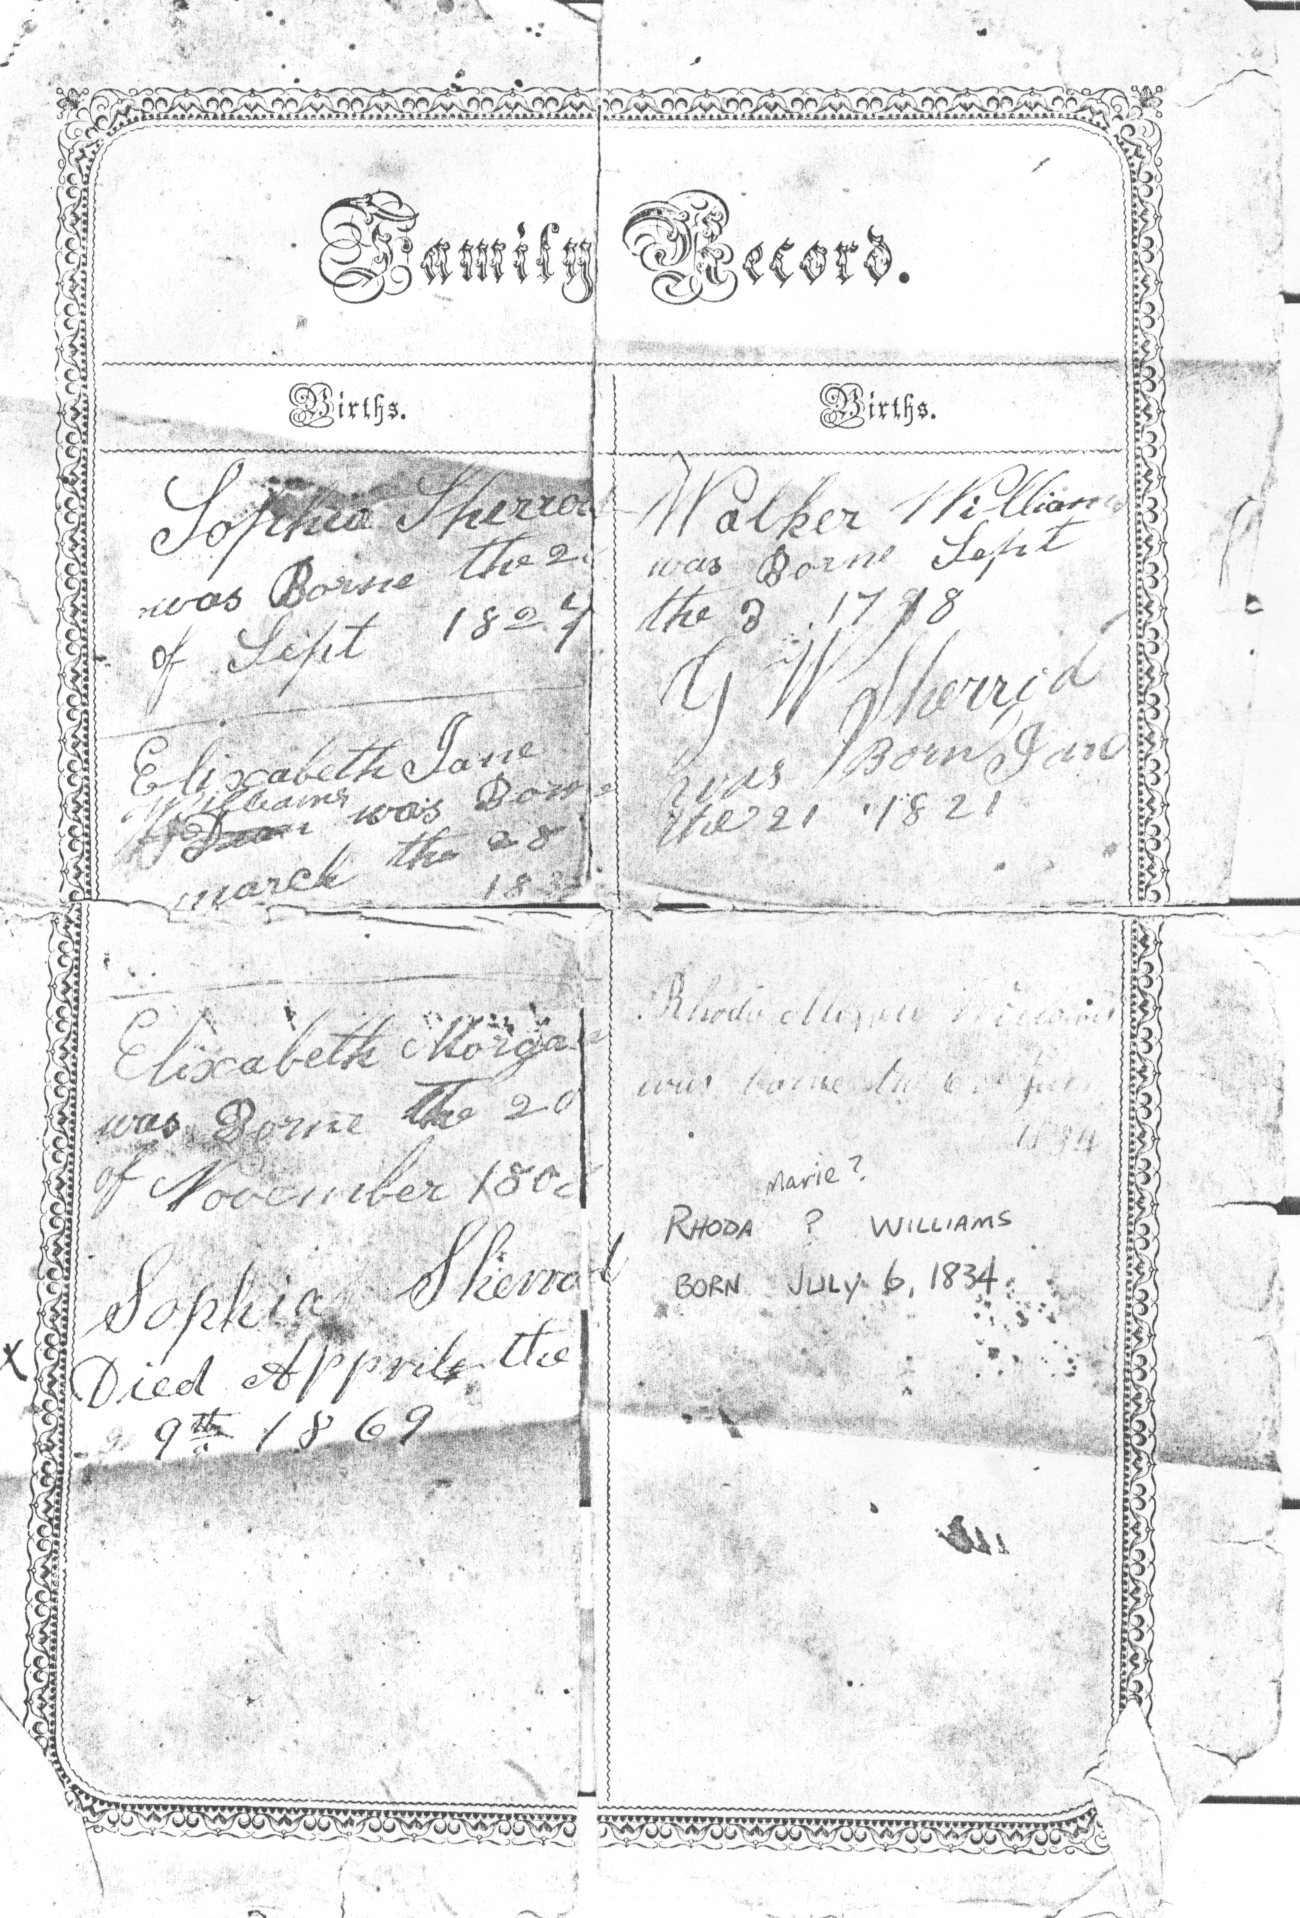 Family Record.
Births.
Sophia Sherrod
was Borne the 2
of Sept 1824
Elizabeth Jane
Williams
was Borne
march the 28
18
Elizabeth Morgan
was Borne the 20
of November 180
Sophia Sherrod
x Died Apprile the
9th 1869
Births.
Walker Williams
was Borne Sept
the 3 1798
G W Sherrod
was Born Jan
the 21 1821
Rhoda Williams
was borne the
1834
Marie?
RHODA ? WILLIAMS
BORN JULY 6, 1834